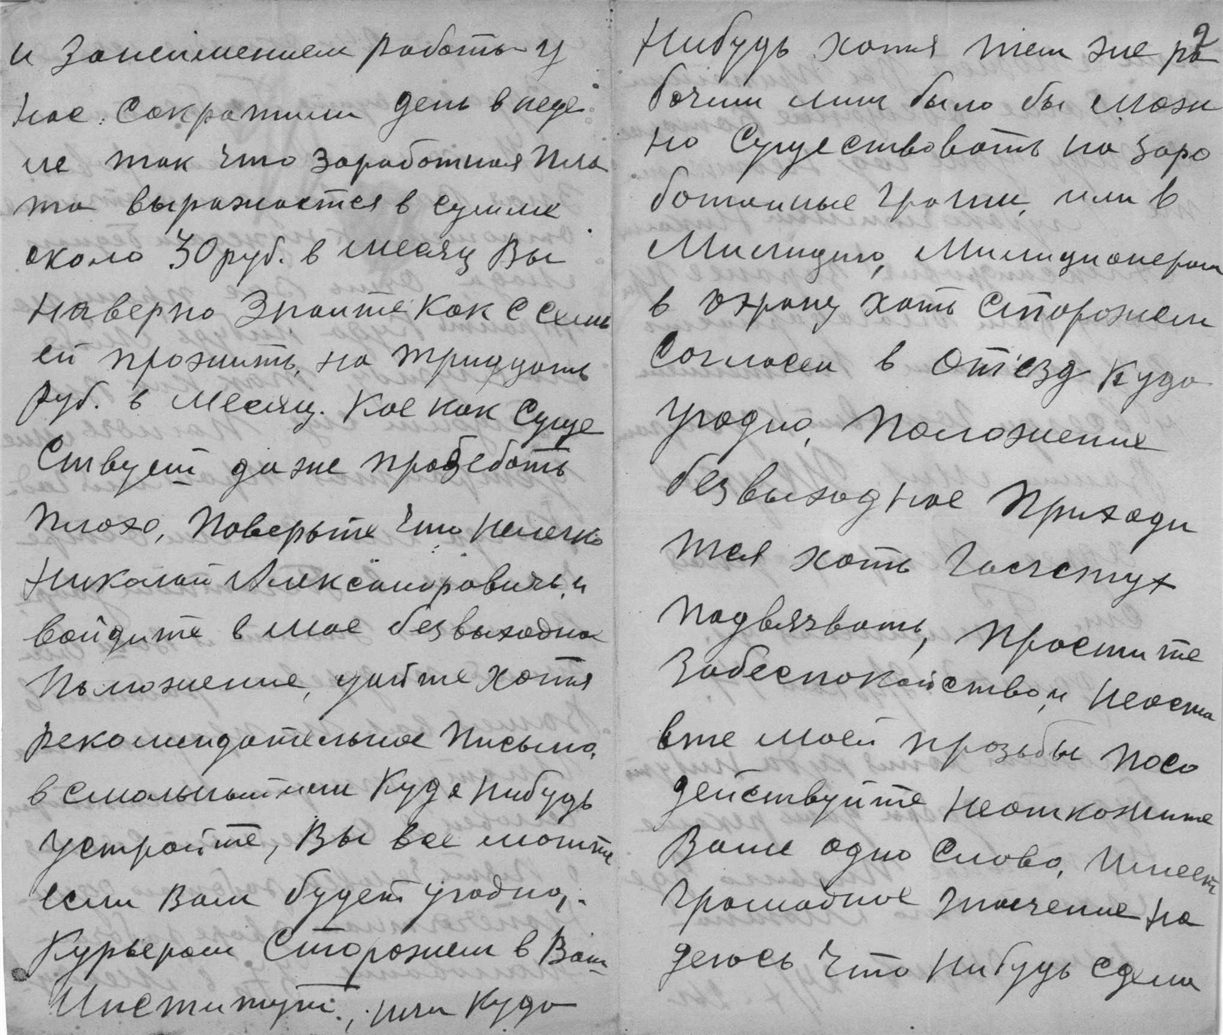 и Занеимением работы у
нас. Сократили день в неде
ле так что Заработная Пла
та выражается в сумме
около 30 руб. в месяц Вы
наверно Знаите Как с семь
ей прожить, на тридцать
руб. в месяц. Кое как Суще
Ствует даже
плохо, Поверьте Что нелегко
Николай Александровичь, и
войдите в мое безвыходное
Положение, дайте хотя
рекомендательное Письмо,
в смольный или Куда нибудь
устройте, Вы все можите
если Вам будет угодно,.
Курьером Сторожем в Ваш
Институт., или Куда
2
Нибудь хотя тем же ра
бочим лиш было бы можн
но Существовать на Заро
ботанные Гроши, или в
Милицию, Милиционером
в охрану хоть Сторожем
Согласен в Отъезд Куда
Угодно, Положение
безвыходное Приходи
тся хоть Галстух
Подвязвать, Простите
Забеспокойство, и неоста
вте моей прозьбы Посо
действуйте, неоткожите
Ваше одно Слово, Имеет
Громадное значение на
деюсь Что Нибудь Сдела